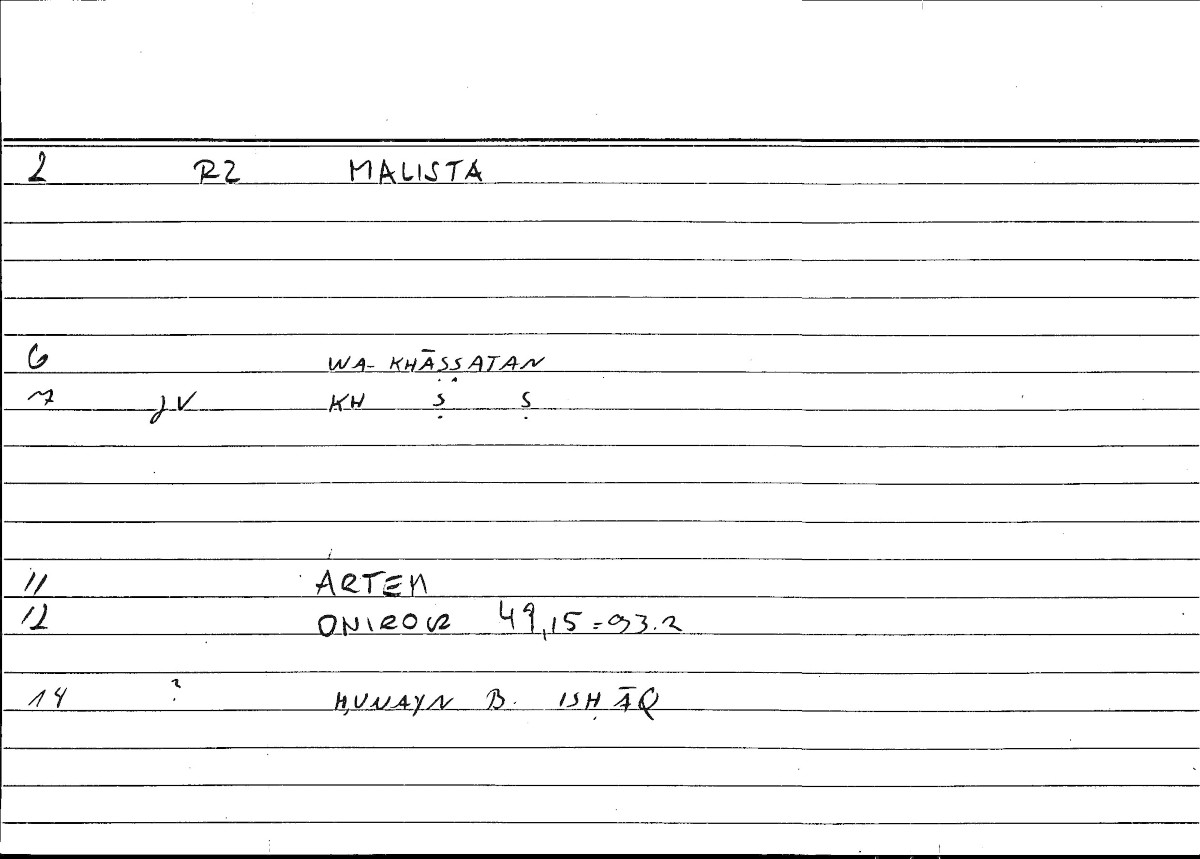 2 R2 MALISTA
6 WA- KHĀṢṢATAN
7 JV KH Ṣ Ṣ
11 ARTEM
12 ONIROCR 49,15=93.2
14 ? ḤUNAYN B. ISḤĀQ